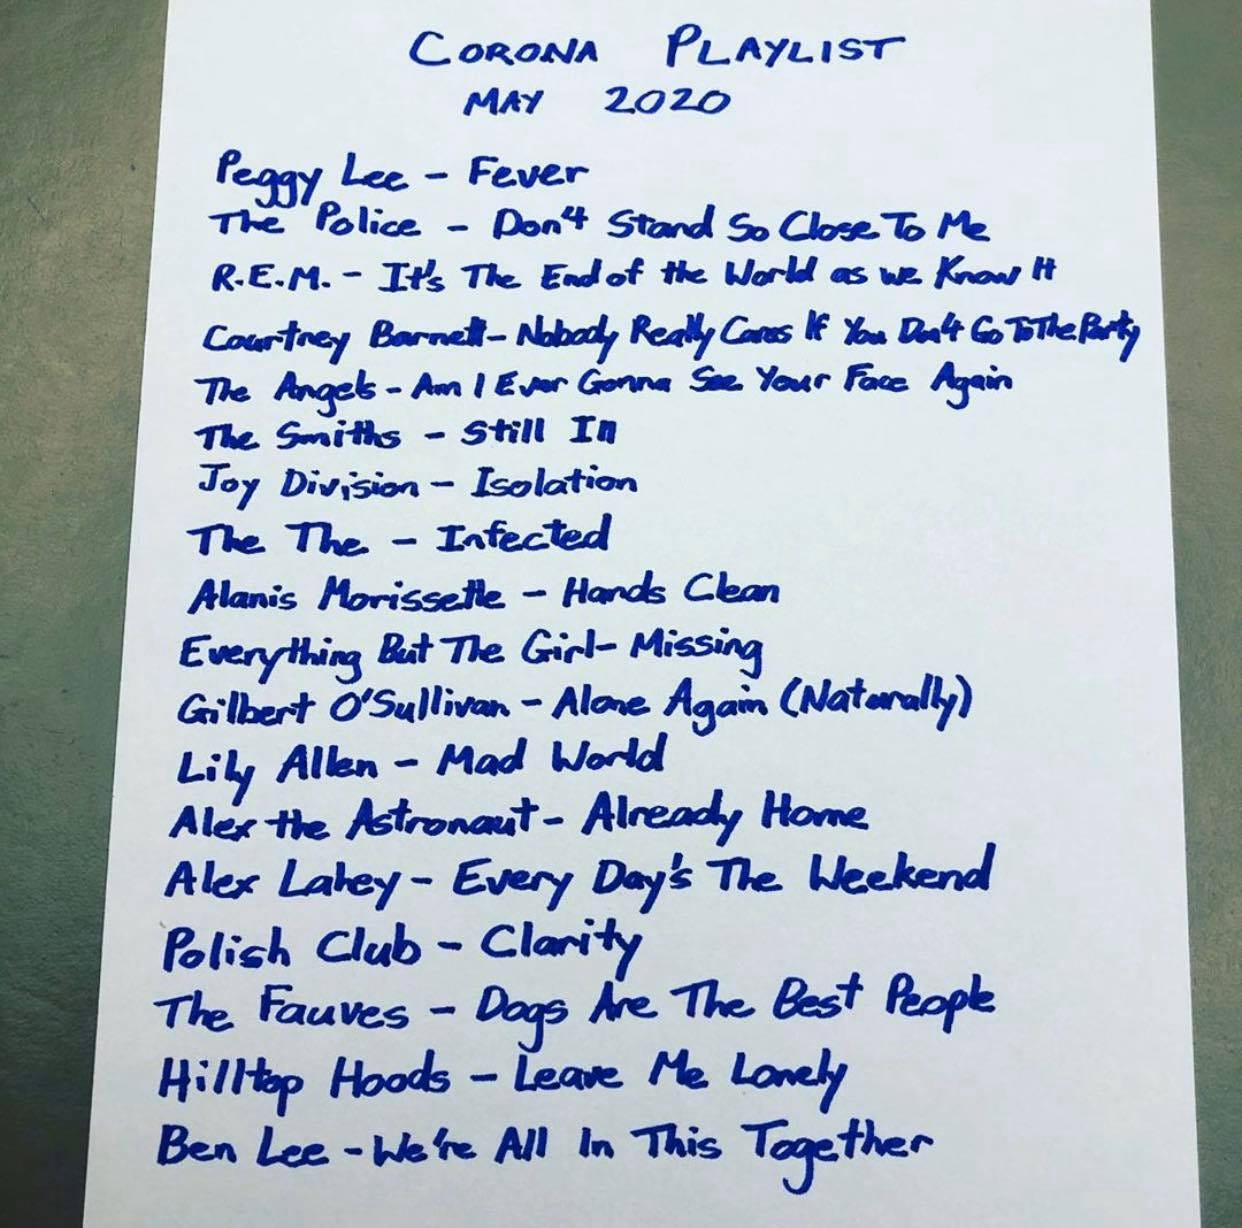 CORONA PLAYLIST
MAY 2020
Peggy Lee - Fever
The Police - Don't Stand So Close To Me
R.E.M. - It's The End of the World as we Know It
Courtney Barnett - Nobody Really Cares If You Don't Go To The Party
The Angels - Am I Ever Gonna See Your Face Again
The Smiths - Still Ill
Joy Division - Isolation
The The - Infected
Alanis Morissette - Hands Clean
Everything But The Girl - Missing
Gilbert O'Sullivan - Alone Again (Naturally)
Lily Allen - Mad World
Alex the Astronaut - Already Home
Alex Lahey - Every Day's The Weekend
Polish Club - Clarity
The Fauves - Dogs Are The Best People
Hilltop Hoods - Leave Me Lonely
Ben Lee - We're All In This Together